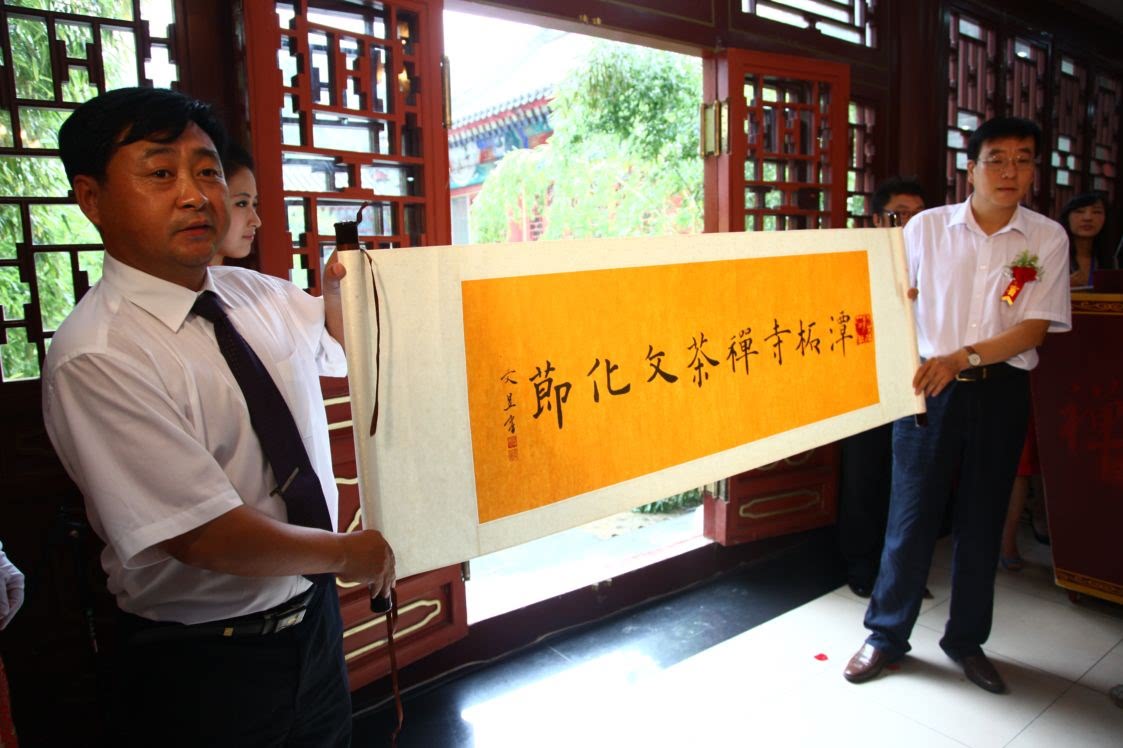 潭柘寺禪茶文化節